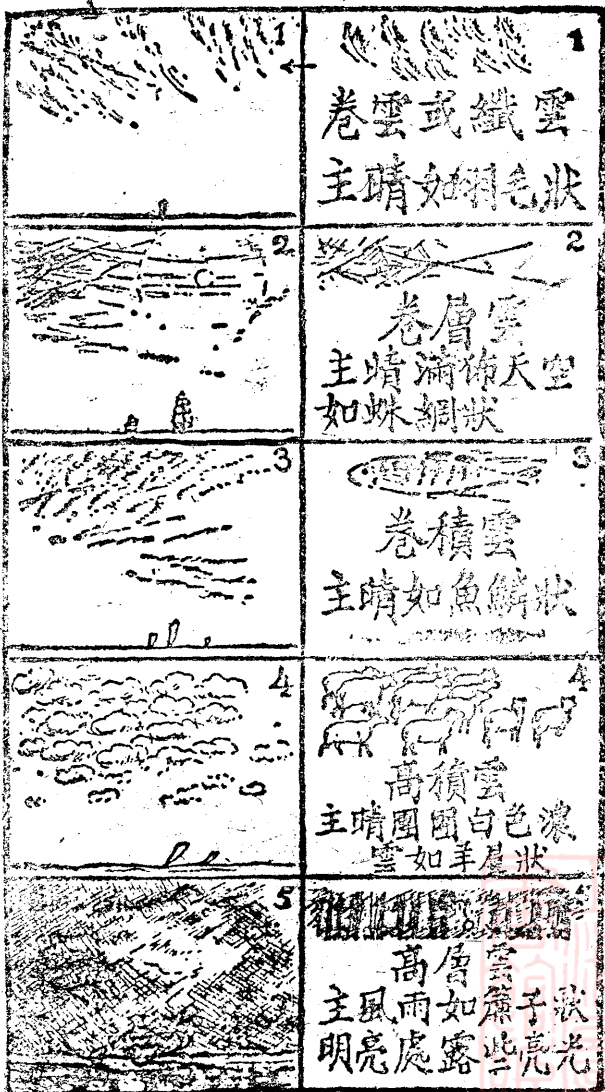 1
1
卷雲或纖雲
主晴如羽毛狀
2
2
卷層雲
主晴滿佈天空
如蛛網狀
3
3
卷積雲
主晴如魚鱗狀
4
4
高積雲
主晴團團白色濃
雲如羊狀
5
高層雲
主風雨如簾子狀
明亮處露些亮光